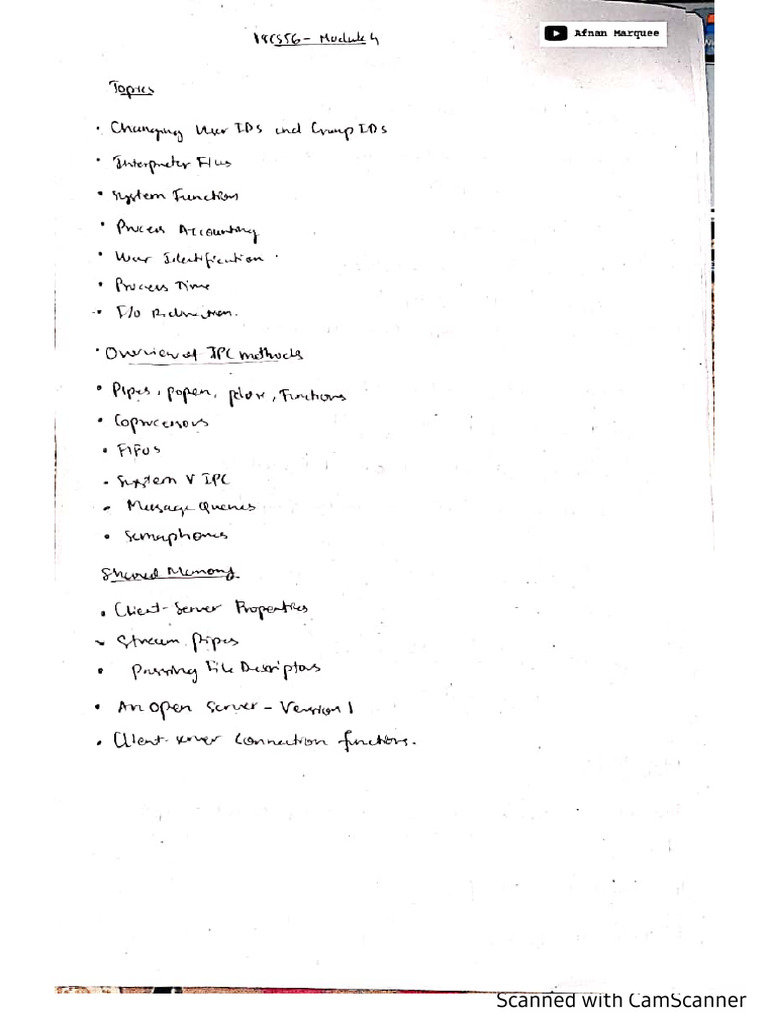 18CS56 - Module 4
Afnan Marquee
Topics
• Changing User IDs and Group IDs
• Interpreter Files
• System Functions
• Process Accounting
• User Identification
• Process Time
• I/O Redirection.
• Overview of IPC methods
• Pipes, popen, pclose, Functions
• Coprocessors
• FIFOs
• System V IPC
• Message Queues
• Semaphores
Shared Memory
• Client-Server Properties
• Stream Pipes
• Passing File Descriptors
• An Open Server - Version 1
• Client-server Connection functions.
Scanned with CamScanner